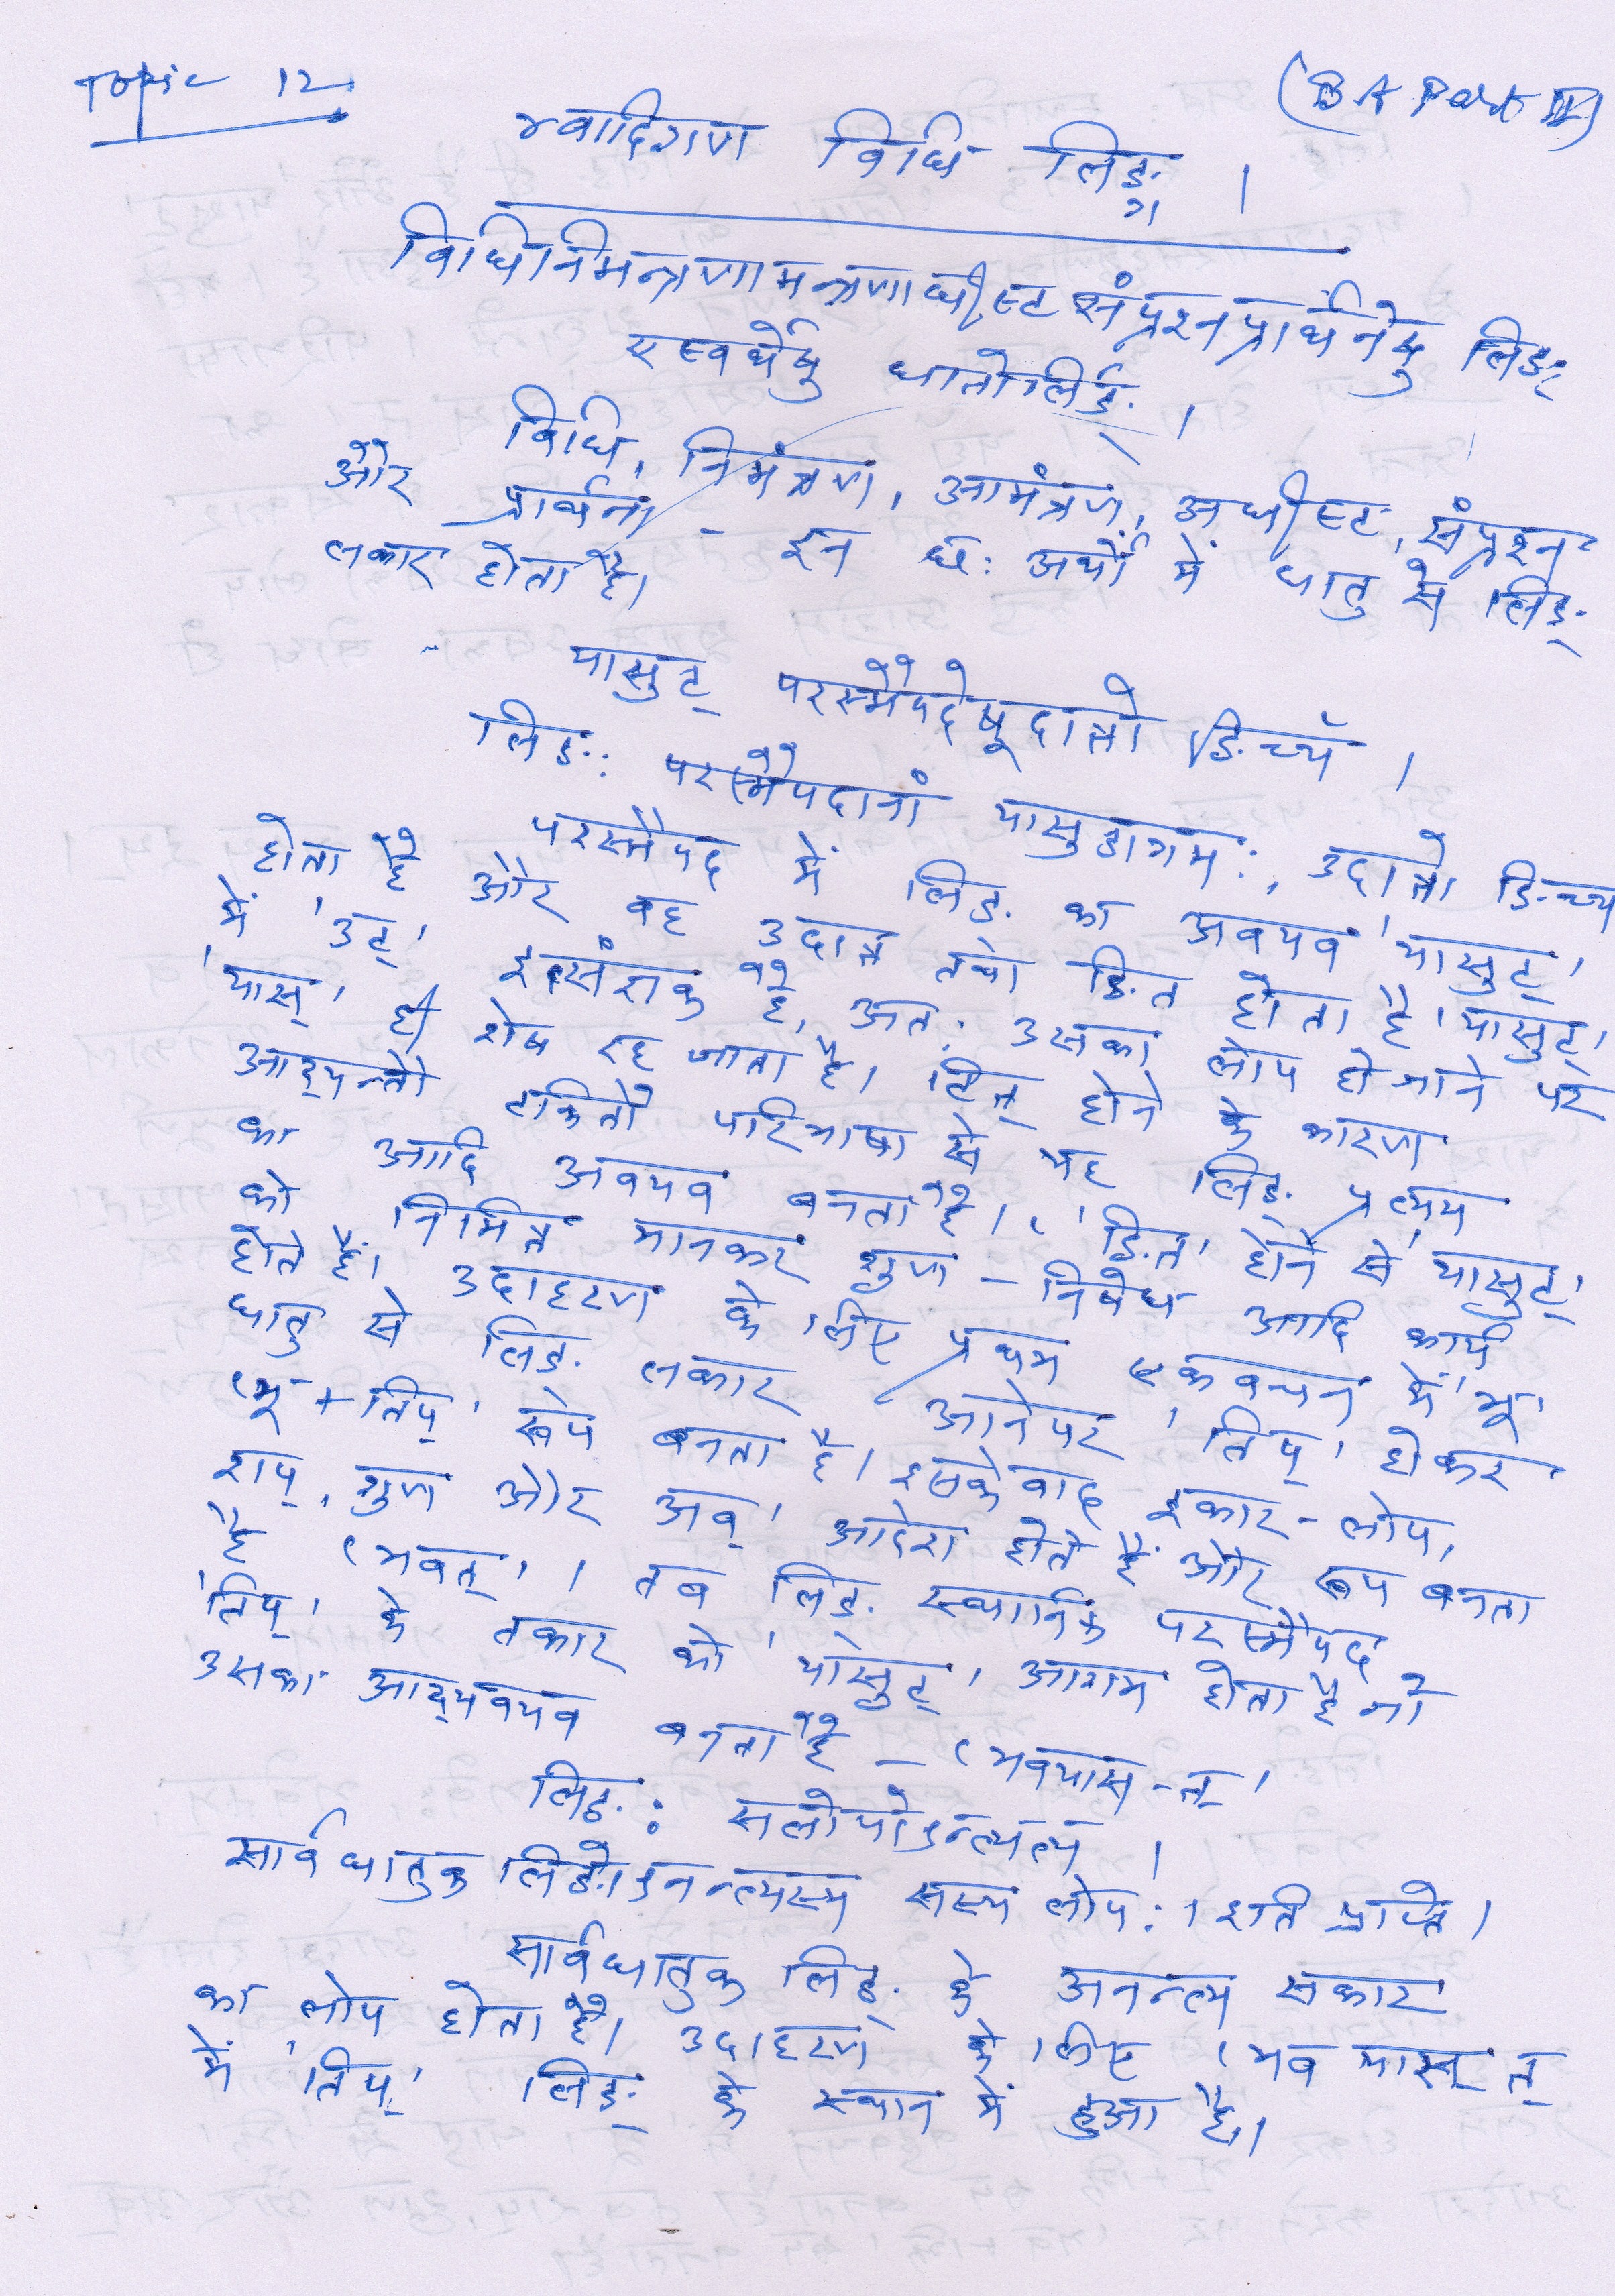 Topic 12
(BA Part II)
भ्वादिगण विधि लिङ् ।
विधिनिमन्त्रणामन्त्रणाधीष्ट संप्रश्नप्रार्थनेषु लिङ्
एष्वर्थेषु धातोर्लिङ् ।
विधि, निमंत्रण, आमंत्रण, अधीष्ट, संप्रश्न
और प्रार्थना - इन छः अर्थों में धातु से लिङ्
लकार होता है।
यासुट् परस्मैपदेषूदात्तो ङिच्च ।
लिङः परस्मैपदानां यासुडागमः, उदात्तो ङिच्च
परस्मैपद में लिङ् का अवयव 'यासुट्'
होता है और वह उदात्त तथा ङित होता है। 'यासुट्'
में 'उट्' इत्संज्ञक है, अतः उसका लोप हो जाने पर
'यास्' ही शेष रह जाता है। टित् होने के कारण
आद्यन्तौ टकितौ परिभाषा से यह लिङ् प्रत्यय
का आदि अवयव बनता है। 'ङित्' होने से 'यासुट्'
को निमित्त मानकर गुण - निषेध आदि कार्य
होते हैं। उदाहरण के लिए प्रथम एकवचन में 'भू'
धातु से लिङ् लकार आनेपर 'तिप्' होकर
'भू + तिप्' रूप बनता है। इसके बाद इकार - लोप,
शप्, गुण और अव्' आदेश होते हैं और रूप बनता
है 'भवत्' । तब लिङ् स्थानिक परस्मैपद
'तिप्' के तकार को 'यासुट्' आगम होता है जो
उसका आद्यवयव बनता है - 'भवयास - त्'
लिङः सलोपोऽनन्त्यस्य ।
सार्वधातुक लिङोऽनन्त्यस्य सस्य लोपः । इति प्राप्ते।
सार्वधातुक लिङ् के अनन्त्य सकार
का लोप होता है। उदाहरण के लिए 'भव यास् त्
में 'तिप्' लिङ् के स्थान में हुआ है।